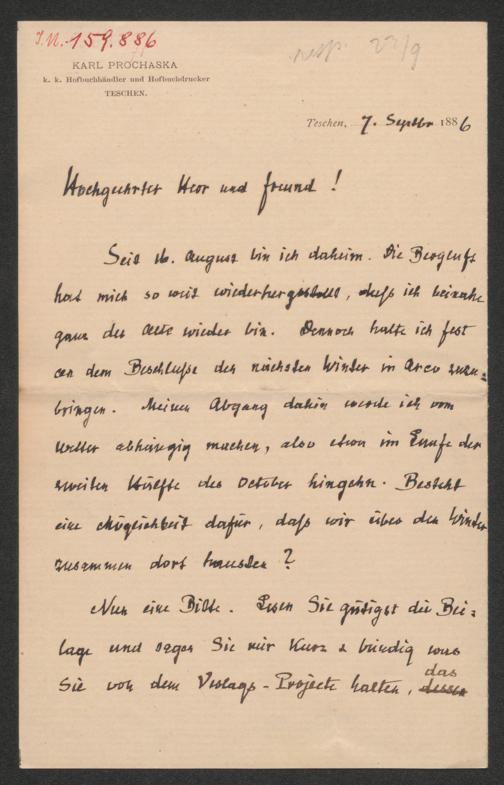 J.N. 159.886
resp. 22/9
KARL PROCHASKA
k. k. Hofbuchhändler und Hofbuchdrucker
TESCHEN.
Teschen, 7. Septbr 1886
Hochgeehrter Herr und Freund!
Seit 16. August bin ich daheim. Die Bergluft
hat mich so weit wiederhergestellt, daß ich beinahe
ganz der Alte wieder bin. Dennoch halte ich fest
an dem Beschluße den nächsten Winter in Arco zuzu=
bringen. Meinen Abgang dahin werde ich vom
Wetter abhängig machen, also etwa im Laufe der
zweiten Hälfte des October hingehn. Besteht
eine Möglichkeit dafür, daß wir über den Winter
zusammen dort hausten?
Nun eine Bitte. Lesen Sie gütigst die Bei=
lage und sagen Sie mir kurz & bündig was
das
Sie von dem Verlags-Projecte halten, dessen